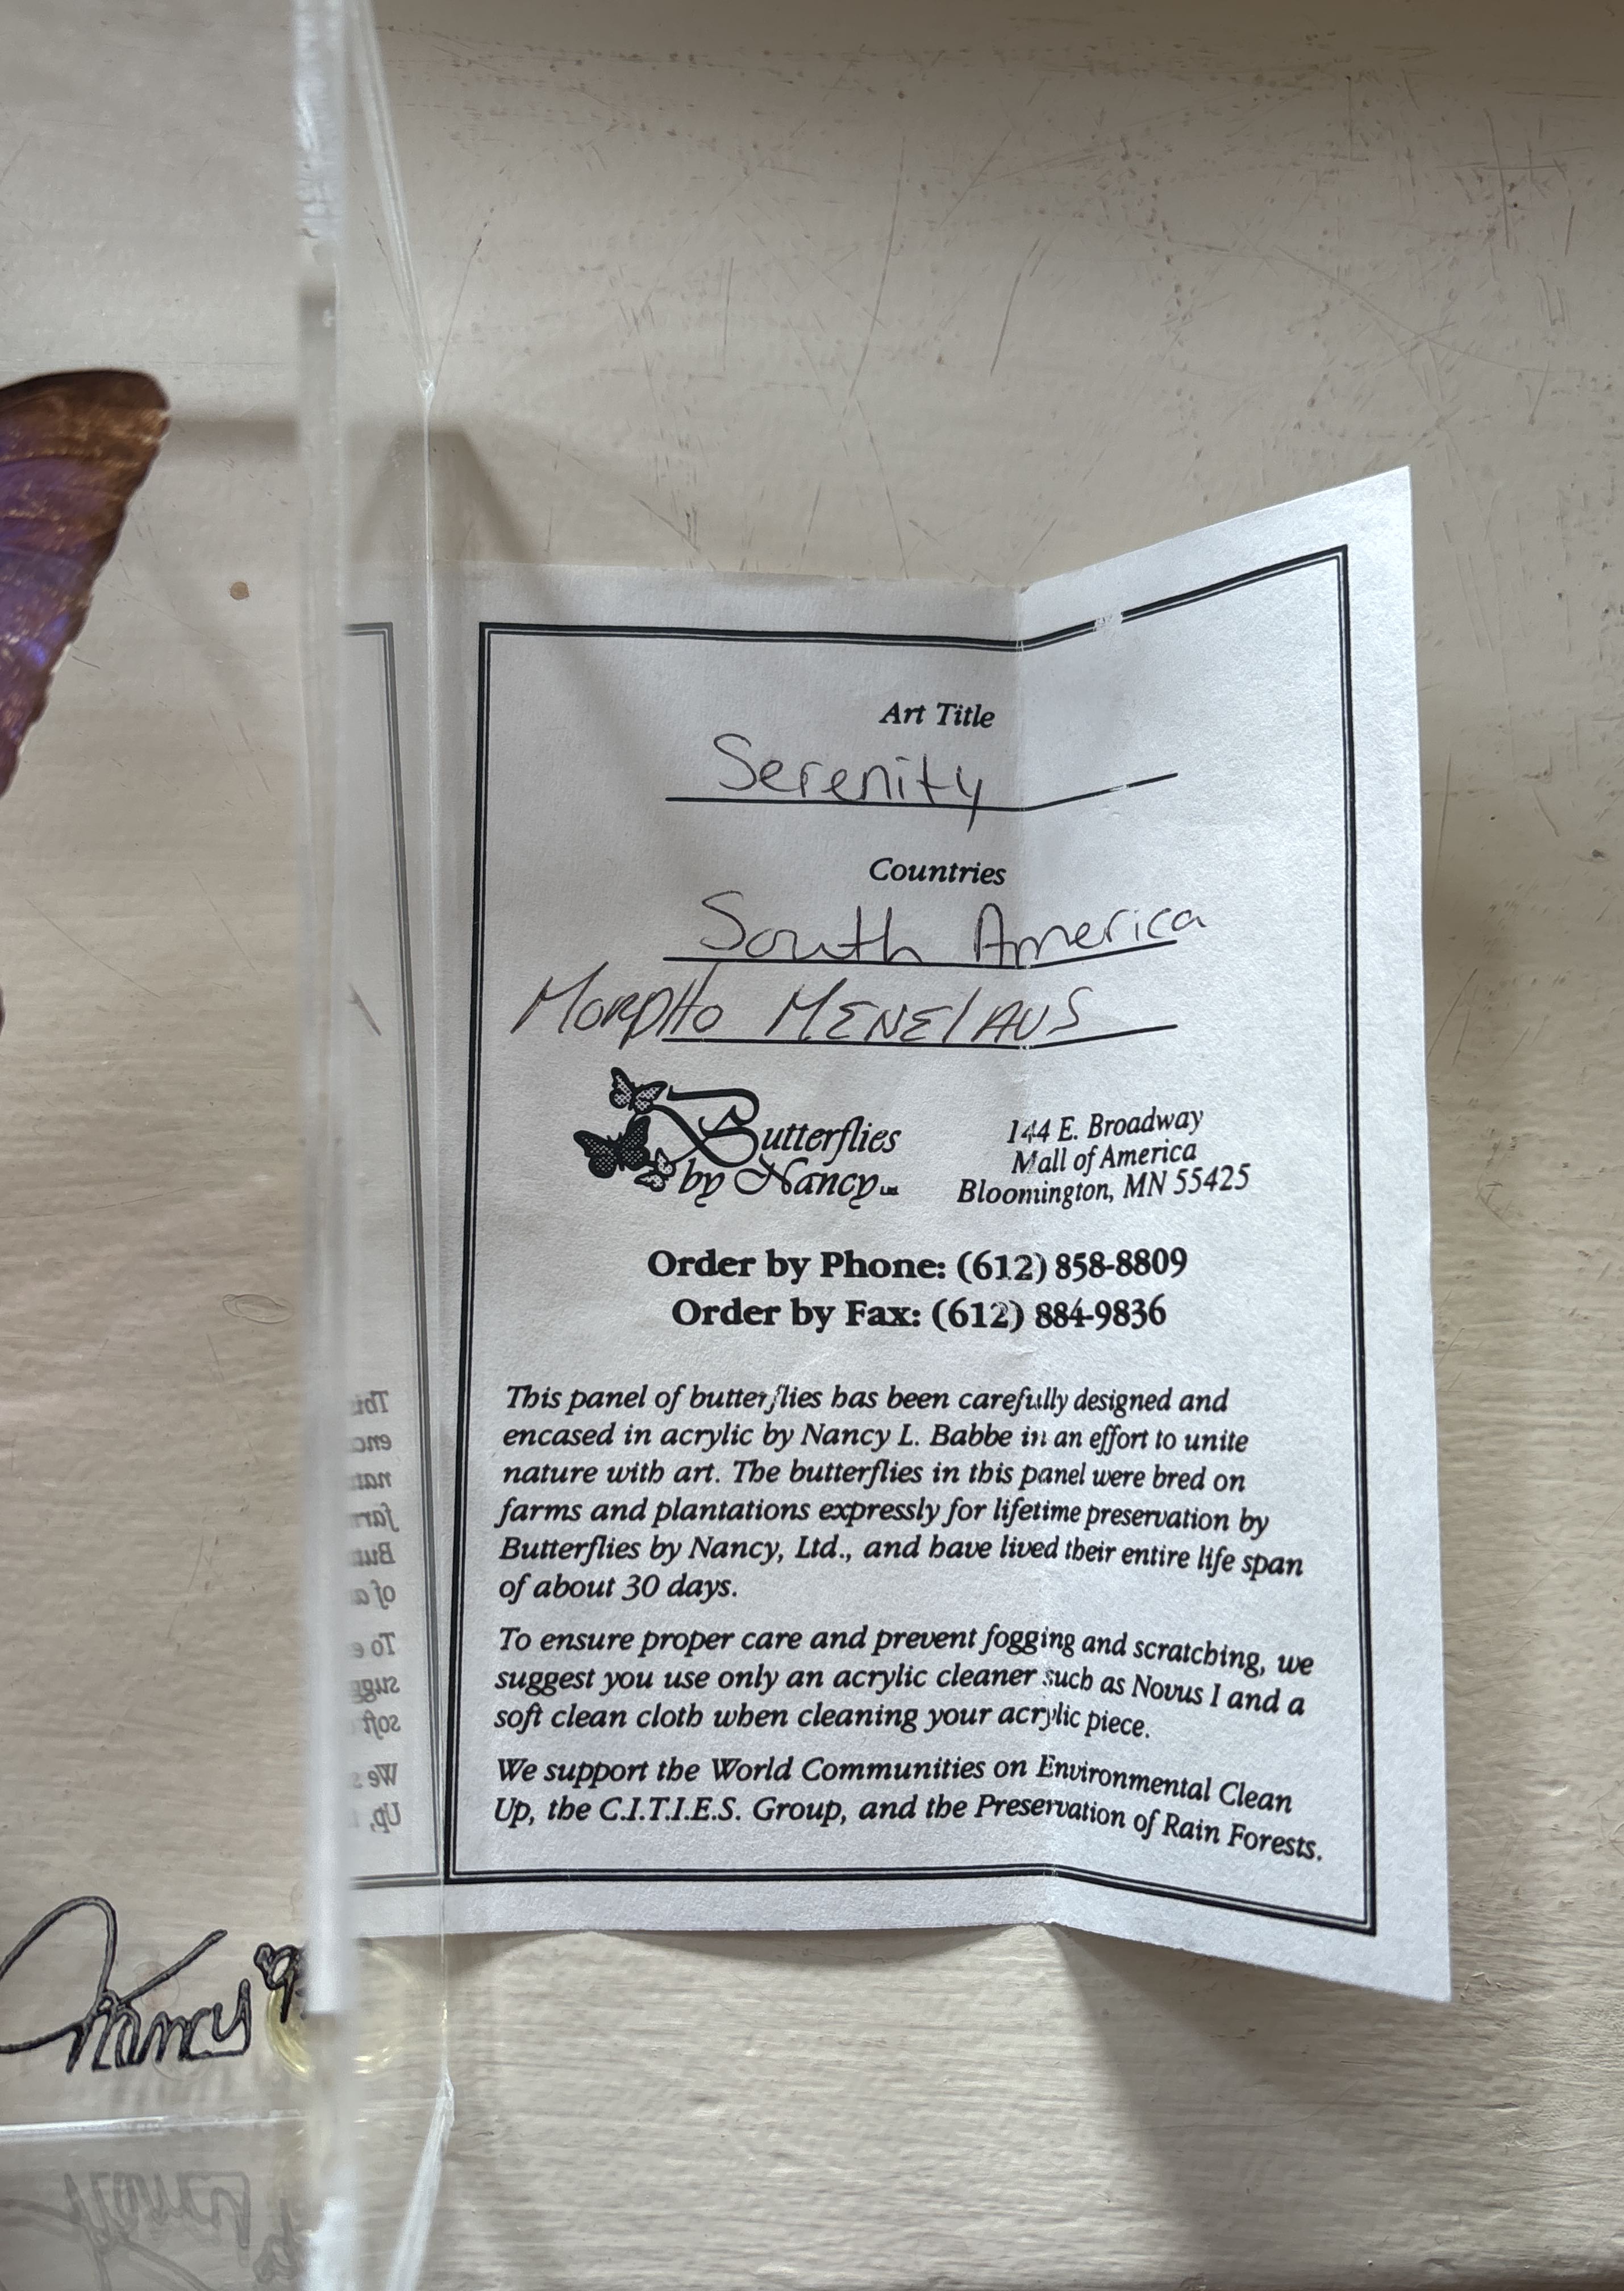 Art Title
Serenity
Countries
South America
MORPHO MENElAUS
Butterflies
by Nancy Ltd.
144 E. Broadway
Mall of America
Bloomington, MN 55425
Order by Phone: (612) 858-8809
Order by Fax: (612) 884-9836
This panel of butterflies has been carefully designed and
encased in acrylic by Nancy L. Babbe in an effort to unite
nature with art. The butterflies in this panel were bred on
farms and plantations expressly for lifetime preservation by
Butterflies by Nancy, Ltd., and have lived their entire life span
of about 30 days.
To ensure proper care and prevent fogging and scratching, we
suggest you use only an acrylic cleaner such as Novus 1 and a
soft clean cloth when cleaning your acrylic piece.
We support the World Communities on Environmental Clean
Up, the C.I.T.I.E.S. Group, and the Preservation of Rain Forests.
Nancy